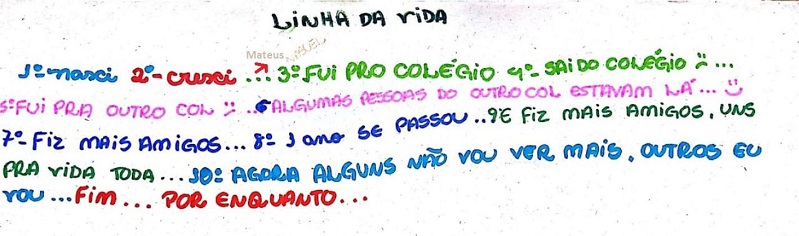 LINHA DA VIDA
Mateus
1º-nasci 2º-cresci ... 3º FUI PRO COLÉGIO 4º- SAI DO COLÉGIO :( ...
5º FUI PRA OUTRO COL :( ... 6 ALGUMAS PESSOAS DO OUTRO COL ESTAVAM LÁ... :)
7º- FIZ MAIS AMIGOS... 8º 1 ano SE PASSOU .. 9º E FIZ MAIS AMIGOS, UNS
PRA VIDA TODA ... 10º AGORA ALGUNS NÃO VOU VER MAIS, OUTROS EU
VOU ... FIM ... POR ENQUANTO...